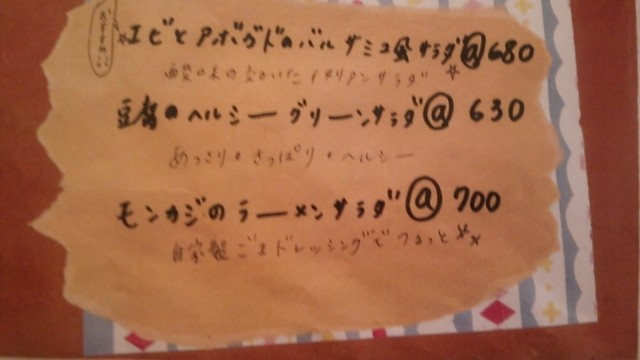 おすすめ!!
☆エビとアボガドのバルサミコ風サラダ@680
酸味の交かいたイタリアンサラダ☆
豆腐のヘルシーグリーンサラダ@630
あっさり・さっぱり・ヘルシー
モンカジのラーメンサラダ@700
自家製ごまドレッシングでつるっと☆☆